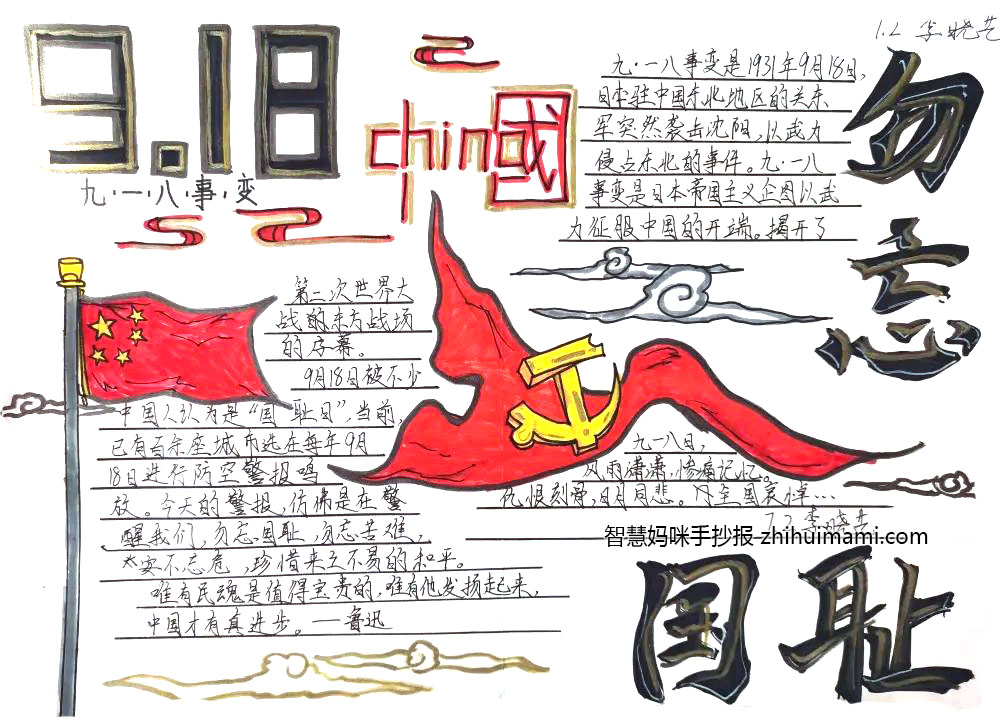 9.18
九·一·八·事·变
china
國
1.2 李晓艺
勿忘
国耻
九·一八事变是1931年9月18日,
日本驻中国东北地区的关东
军突然袭击沈阳,以武力
侵占东北的事件。九·一八
事变是日本帝国主义企图以武
力征服中国的开端。揭开了
第二次世界大
战的东方战场
的序幕。
9月18日被不少
中国人认为是“国耻日”,当前,
已有百余座城市选在每年9月
18日进行防空警报鸣
放。今天的警报,仿佛是在警
醒我们,勿忘国耻,勿忘苦难,
太安不忘危,珍惜来之不易的和平。
唯有民魂是值得宝贵的,唯有他发扬起来,
中国才有真进步。——鲁迅
九一八日,
风雨潇潇,惨痛记忆。
仇恨刻骨,日月同悲。
全国哀悼…
李晓艺
智慧妈咪手抄报-zhihuimami.com